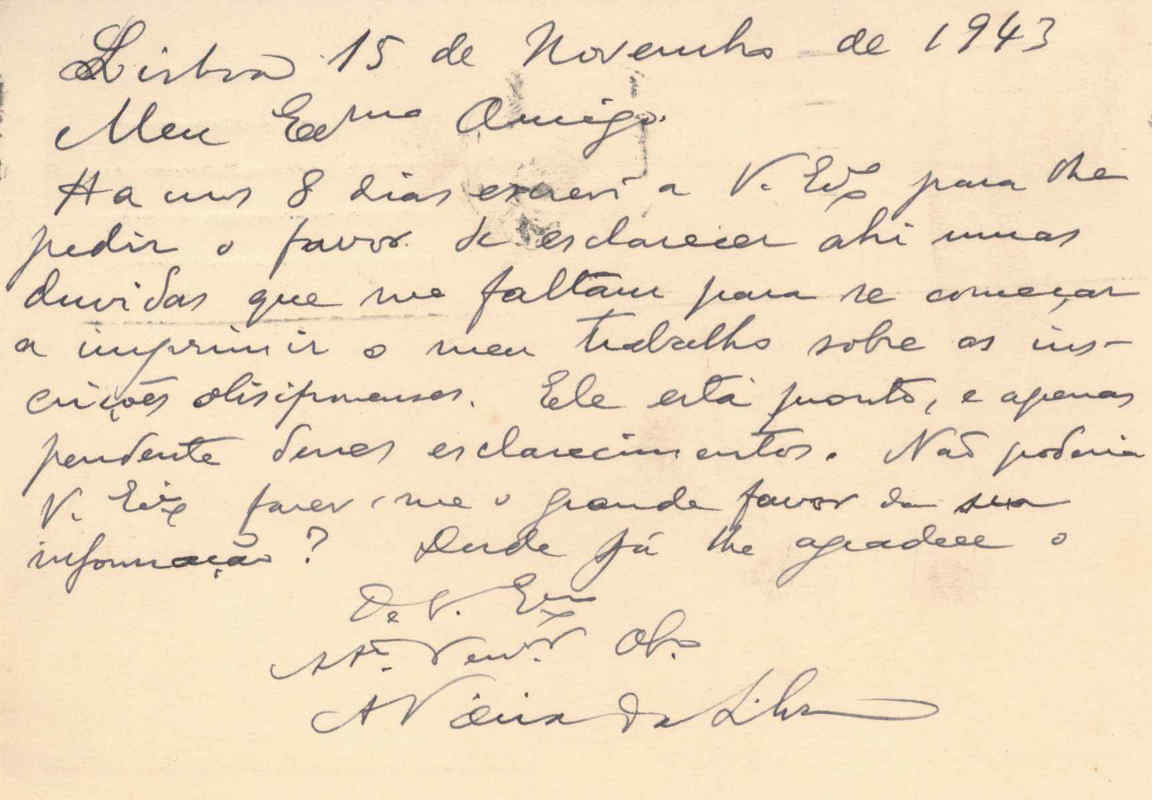 Lisboa 15 de Novembro de 1943
Meu Exmo Amigo.
Ha uns 8 dias escrevi a V. Exa para lhe
pedir o favor de esclarecer ahi umas
duvidas que me faltam para se começar
a imprimir o meu trabalho sobre as ins-
crições olisiponenses. Ele está pronto, e apenas
pendente desses esclarecimentos. Não poderia
V. Exa fazer-me o grande favor da sua
informação? Desde já lhe agradece o
De V. Exa
Att. Venor. Obo.
A Vieira da Silva